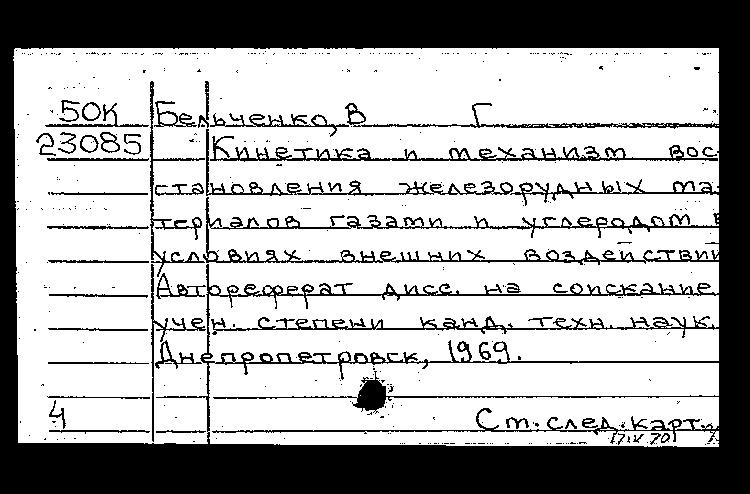 50К Бельченко, В Г
23085 Кинетика и механизм вос-
становления железорудных ма-
териалов газами и углеродом в
условиях внешних воздействий
Автореферат дисс. на соискание
учен. степени канд. техн. наук.
Днепропетровск, 1969.
4 Ст. след. карт.